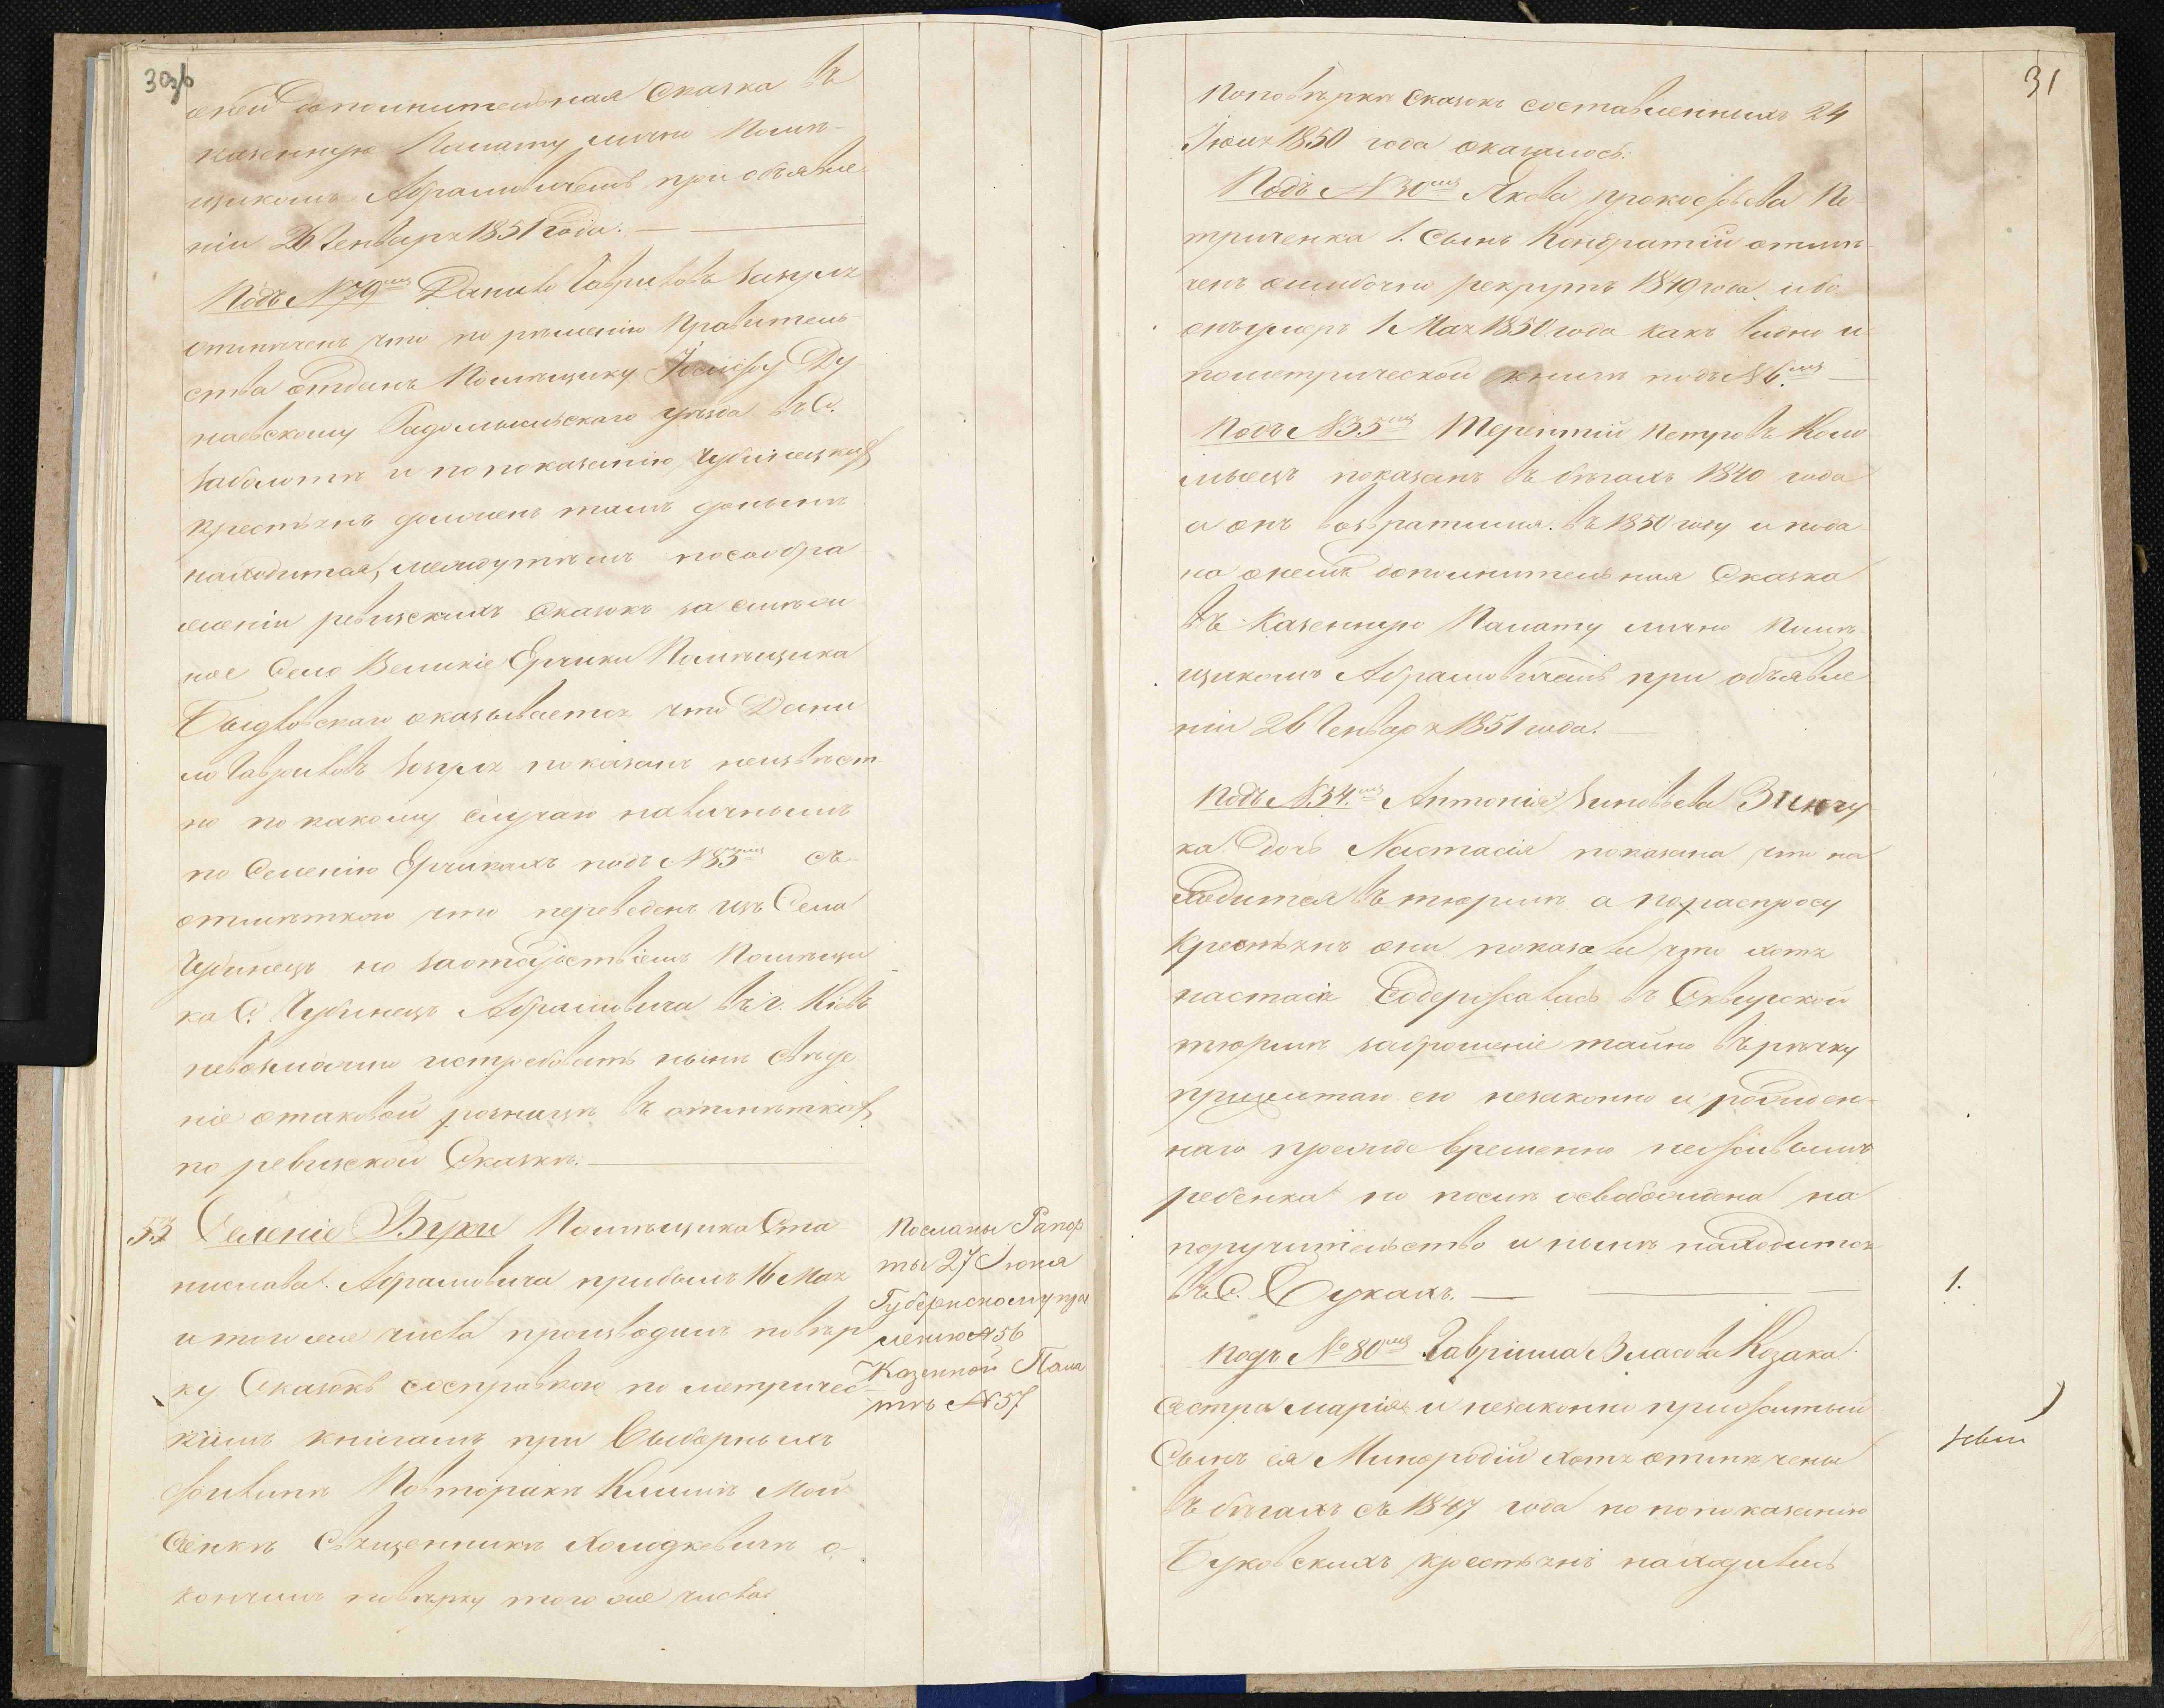 30об
оней дополнительная Сказка въ
казенную Палату лично Помѣ-
щикомъ Абрамовичемъ при объявле-
ніи 26 Генваря 1851 года. —
Подъ № 79мъ Данило Гавриловъ Зазуля
отмѣченъ что по рѣшенію Правитель-
ства отданъ Помѣщику Іосифу Ду
наевскому Радомысльскаго уѣзда въ С.
Заболоти и по показанію Чубинецкихъ
крестьянъ долженъ тамъ донынѣ
находится, между тѣмъ по сообра
женіи ревизскихъ Сказокъ за
ное Село Великіе Ерчики Помѣщика
оказывается что Дани
ло Гавриловъ Зазуля показанъ неизвѣст
но по какому случаю наличнымъ
по Селенію Ерчикахъ подъ № 85мъ съ
отмѣткою что переведенъ изъ Села
Чубинецъ но за отсутствіемъ Помѣщи
ка С. Чубинецъ Абрамовича въ г. Кіевѣ
невозможно истребовать нынѣ свѣде
ніе о таковой разницѣ въ отмѣткахъ
по ревизской Сказкѣ. —
53 Селеніе Буки Помѣщика Ста
нислава Абрамовича прибылъ 16 Мая
и того же числа производилъ повѣр
ку Сказокъ со справкою по метричес-
кимъ книгамъ при Выборныхъ
Филипѣ Повторакѣ Климѣ Мой
сіенкѣ Священникѣ Холодкевичѣ о-
кончилъ повѣрку того же числа
Посланы Рапор
ты 27 Іюня
Губернскому пра
вленію № 56
Казенной Пала
тѣ № 57
31
По повѣркѣ Сказокъ составленныхъ 24
Іюля 1850 года оказалось:
Подъ № 30мъ Якова Прокофьева Пе
триченка 1. Сынъ Кондратій отмѣ
ченъ ошибочно рекрутъ 1849 года ибо
онъ умеръ 1 Мая 1850 года какъ видно и
по метрической книгѣ подъ № 6мъ —
Подъ № 35мъ Терентій Петровъ Коло
мыецъ показанъ въ бѣгахъ 1840 года
а онъ возвратился въ 1850 году и пода
на онемъ дополнительная Сказка
въ Казенную Палату лично Помѣ
щикомъ Абрамовичемъ при объявле
ніи 26 Генваря 1851 года. —
Подъ № 54мъ Антонія Зиновьева Зинчу
ка Дочь Настасія показана что на
ходится въ тюрмѣ а по распросу
Крестьянъ они показали что хотя
Настасія Содержалась въ Сквирской
тюрмѣ за брошеніе тайно въ рѣчку
прижитаго ею незаконно и рожден-
наго прежде временно неживымъ
ребенка но послѣ освобождена на
поручительство и нынѣ находится
въ С. Букахъ. —
1.
Подъ № 80мъ Гавріила Власова Козака
Сестра Марія и незаконно прижитый
Сынъ ея Минородій хотя отмѣчены
въ бѣгахъ съ 1847 года но по показанію
Буковскихъ крестьянъ находились